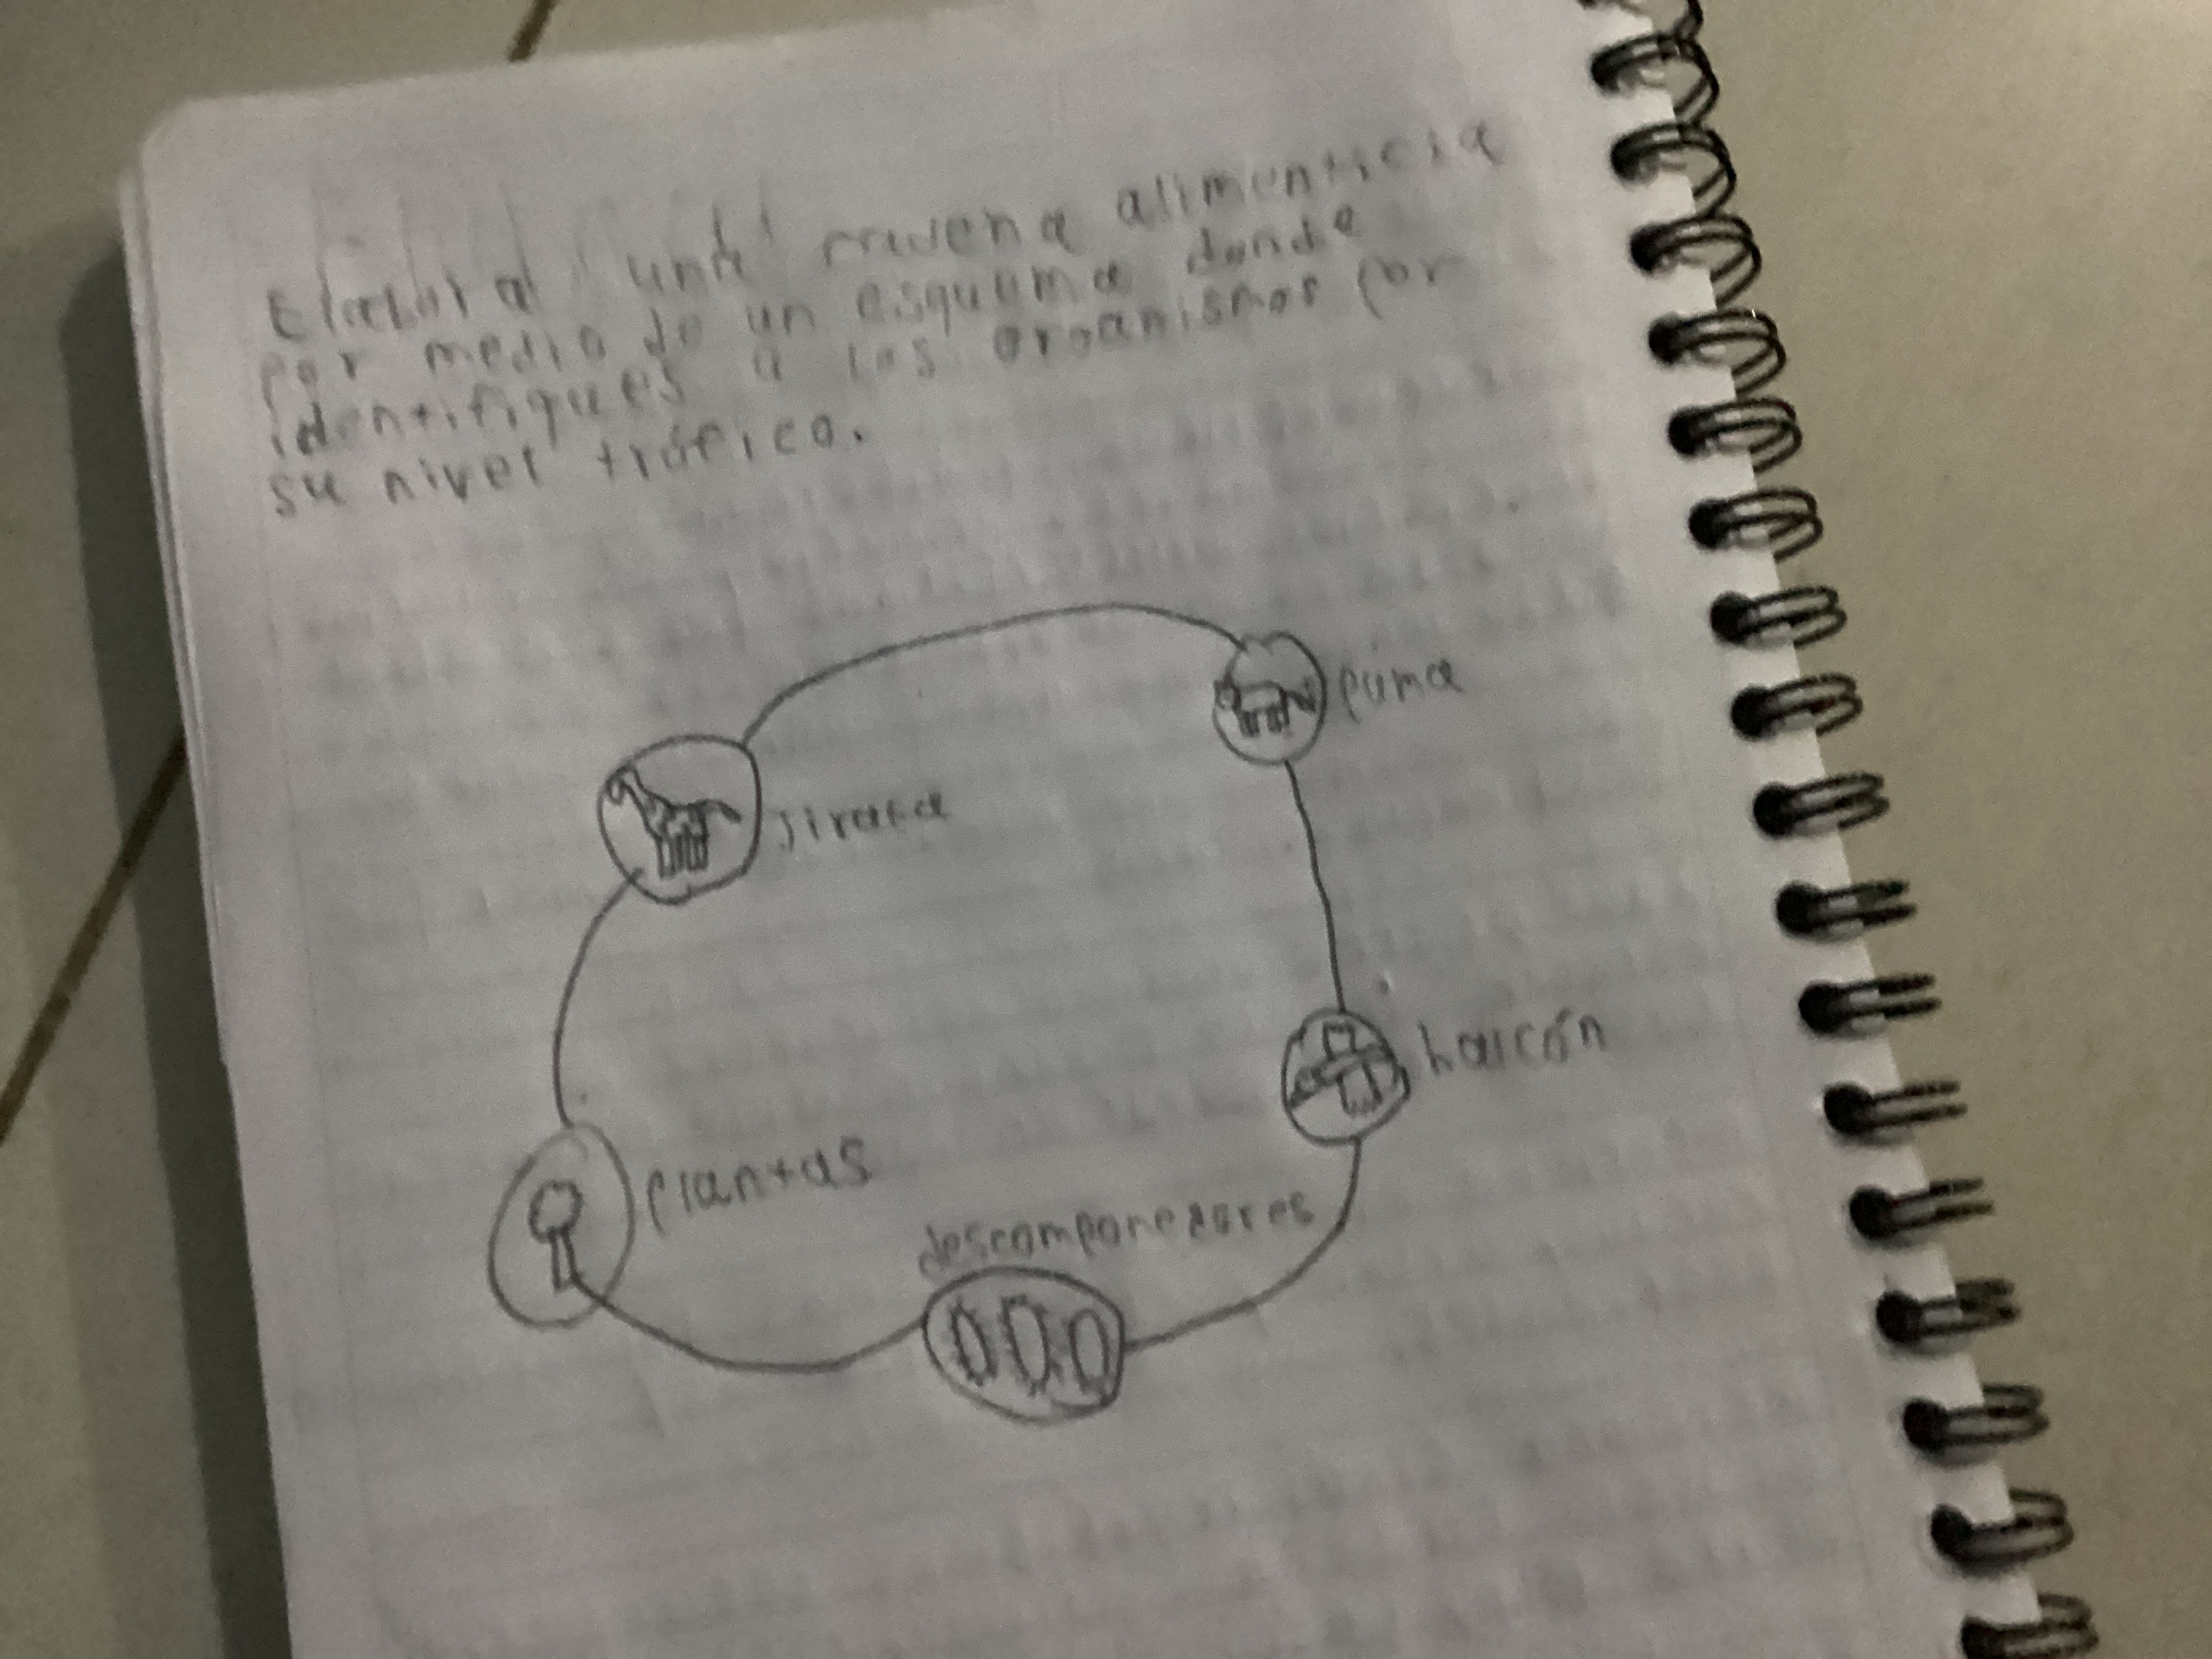 Elabora una cadena alimenticia
por medio de un esquema donde
identifiques a los organismos por
su nivel trófico.
puma
jirafa
halcón
plantas
descomponedores